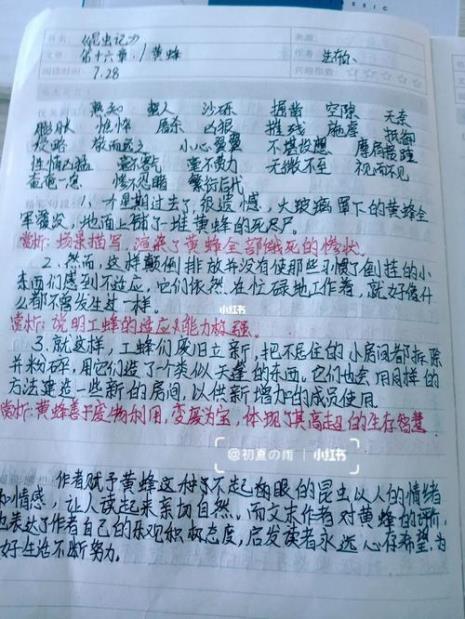 书名 《昆虫记》
文章 第十六章 / 黄蜂 作者 法布尔
阅读时间 7.28
熟知 蟹人 沙砾 掘凿 空隙 无奈
膨胀 憔悴 屠杀 凶狠 摧残 施虐 抵御
小心翼翼 不堪设想 摩肩接踵
性情凶猛 毫不费力 无微不至 视而不见
奄奄一息 惨不忍睹 繁衍后代
1、才星期过去了,很遗憾,火玻璃罩下的黄蜂全
军覆没,地面上铺了一堆黄蜂的死尸。
赏析:场景描写,渲染了黄蜂全部饿死的惨状。
2、然而,这样颠倒排放并没有使那些习惯了倒挂的小
东西们感到不适应,它们依然在忙碌地工作着,就好像什
么都不曾发生过一样。
赏析:说明工蜂的适应能力极强。
3、就这样,工蜂们废旧立新,把不居住的小房间都拆除
并粉碎,用它们造了个类似天篷的东西。它们也会用同样的
方法建造一些新的房间,以供新增加的成员使用。
赏析:黄蜂善于废物利用,变废为宝,体现了其高超的生存智慧。
小红书
@初夏の雨 | 小红书
作者赋予黄蜂这种了不起的昆虫以人的情绪
和情感,让人读起来亲切自然。而文末作者对黄蜂的评价,
也表达了作者自己的乐观积极态度,启发读者永远心存希望,为
好生活不断努力。